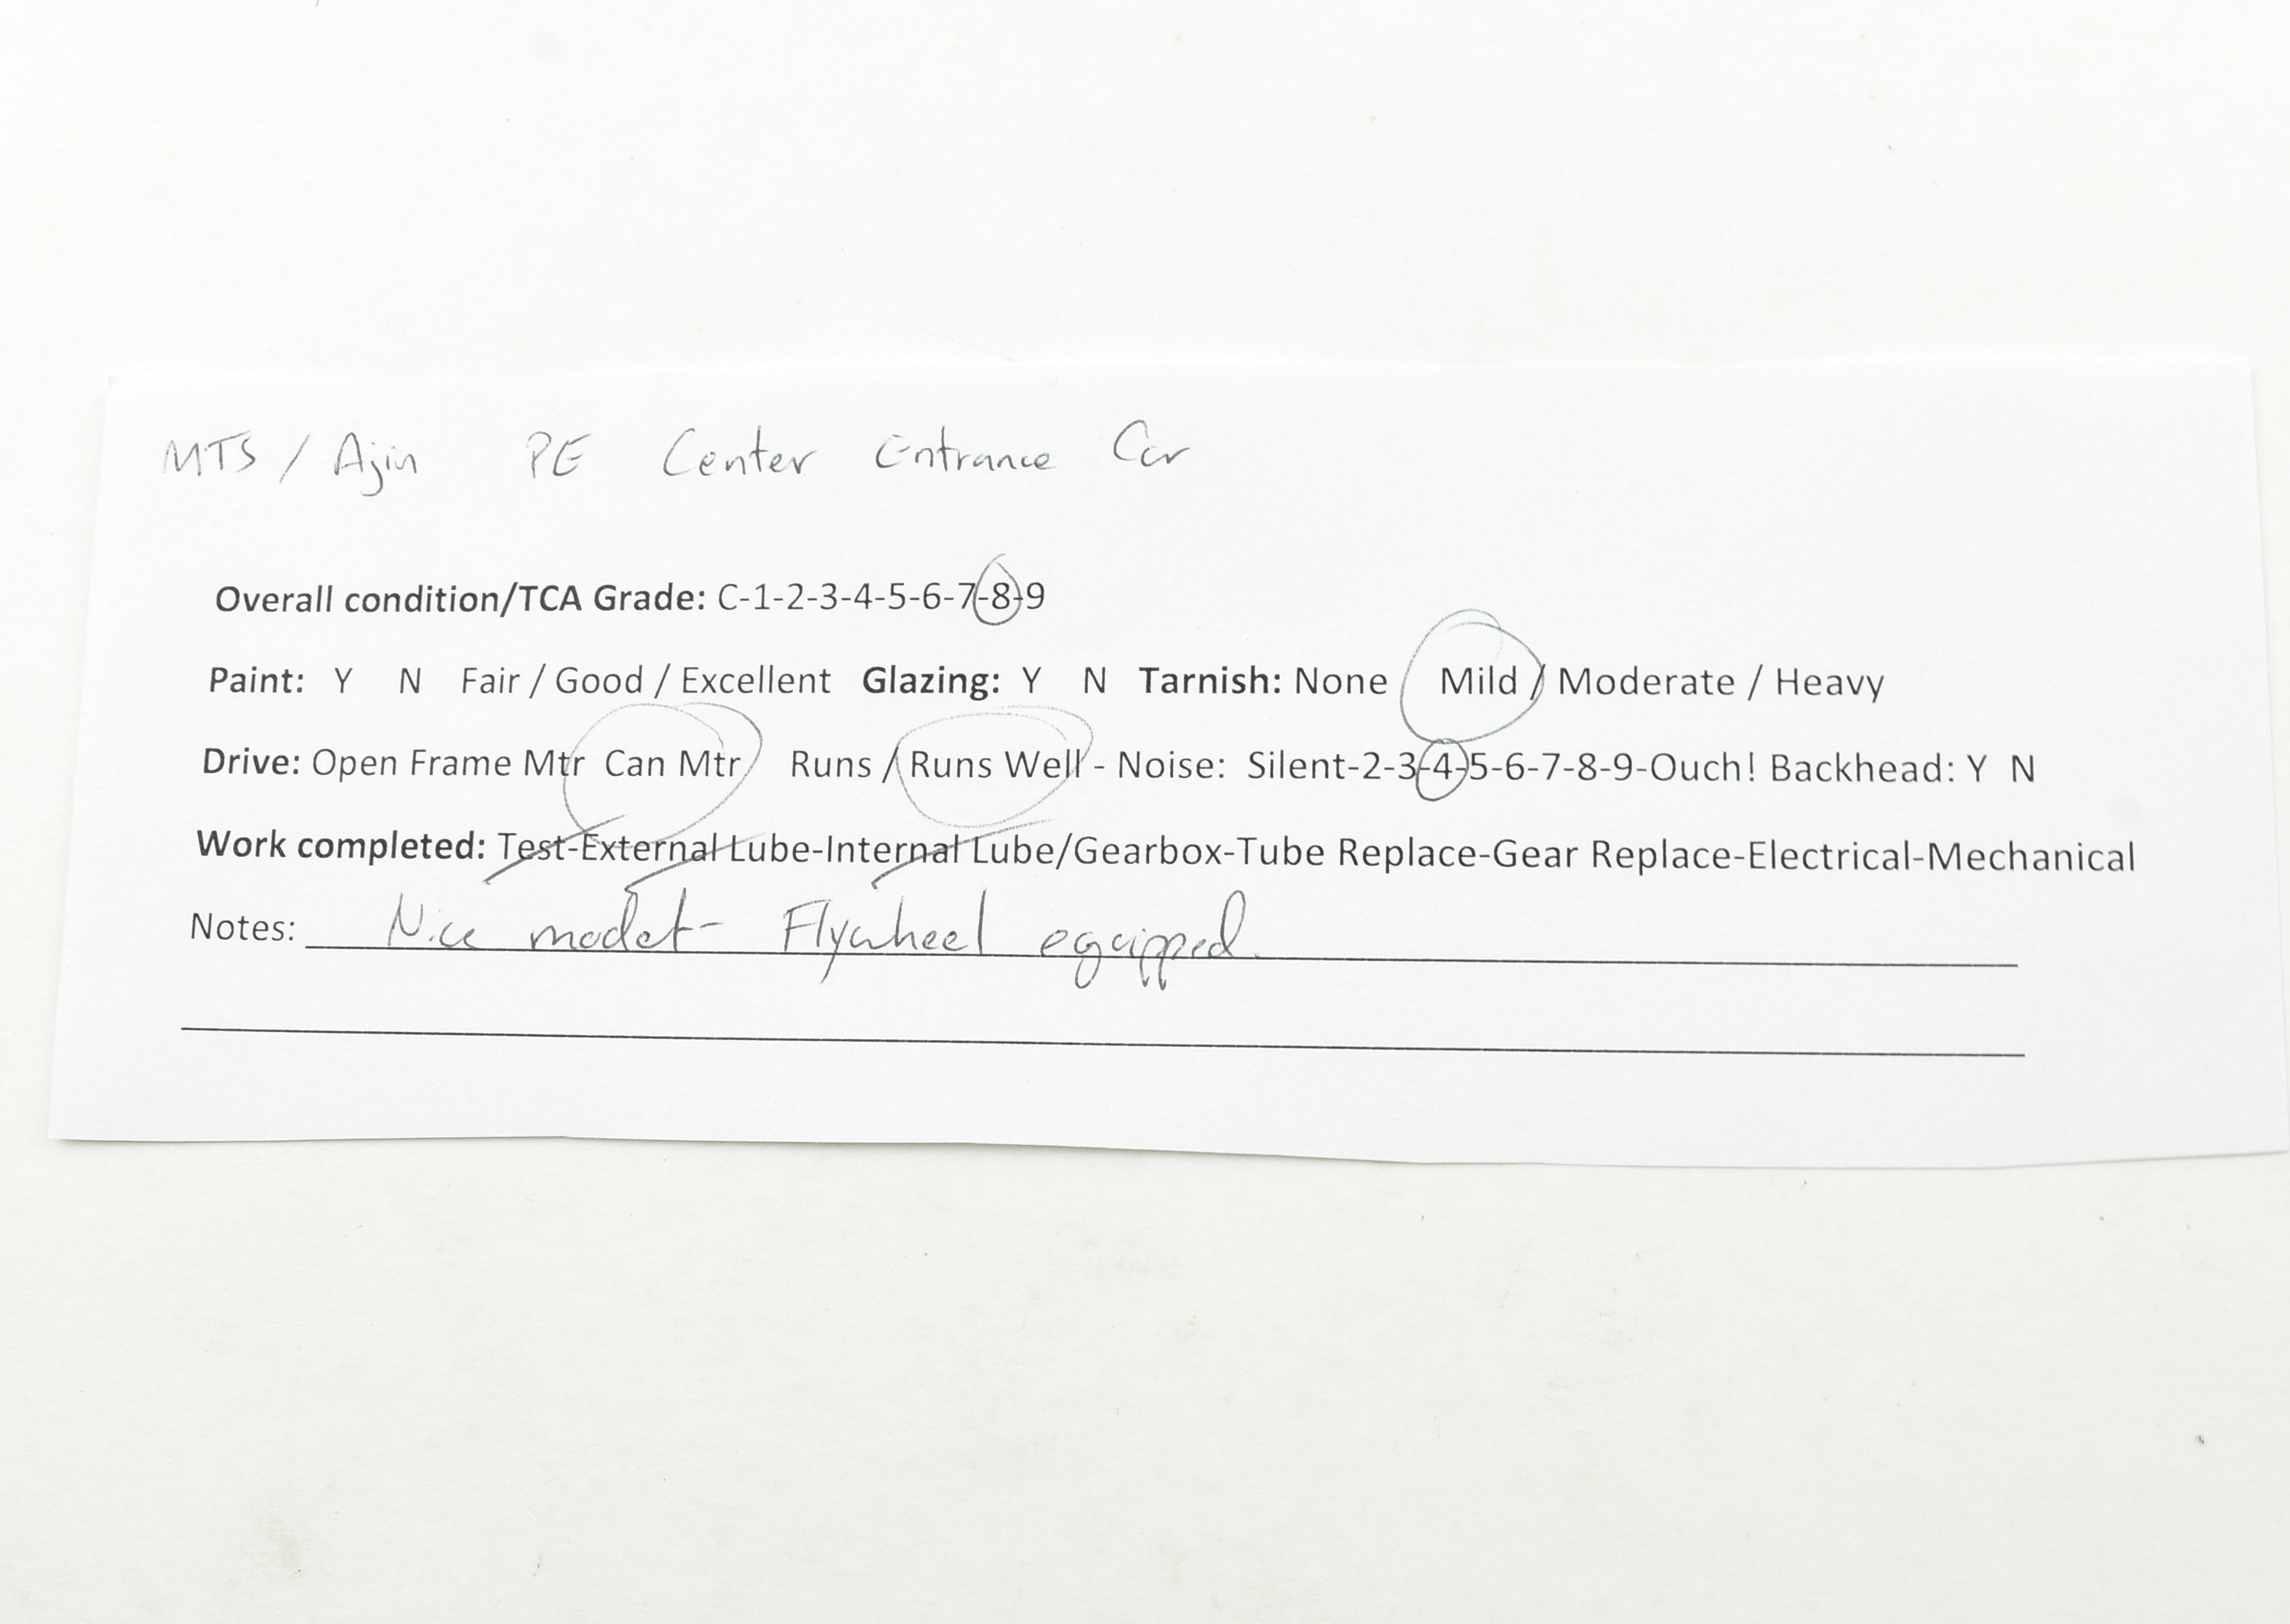 MTS / Ajin PE Center Entrance Car
Overall condition/TCA Grade: C-1-2-3-4-5-6-7-8-9
Paint: Y N Fair / Good / Excellent Glazing: Y N Tarnish: None / Mild / Moderate / Heavy
Drive: Open Frame Mtr Can Mtr Runs / Runs Well - Noise: Silent-2-3-4-5-6-7-8-9-Ouch! Backhead: Y N
Work completed: Test-External Lube-Internal Lube/Gearbox-Tube Replace-Gear Replace-Electrical-Mechanical
Notes: Nice model- Flywheel equipped